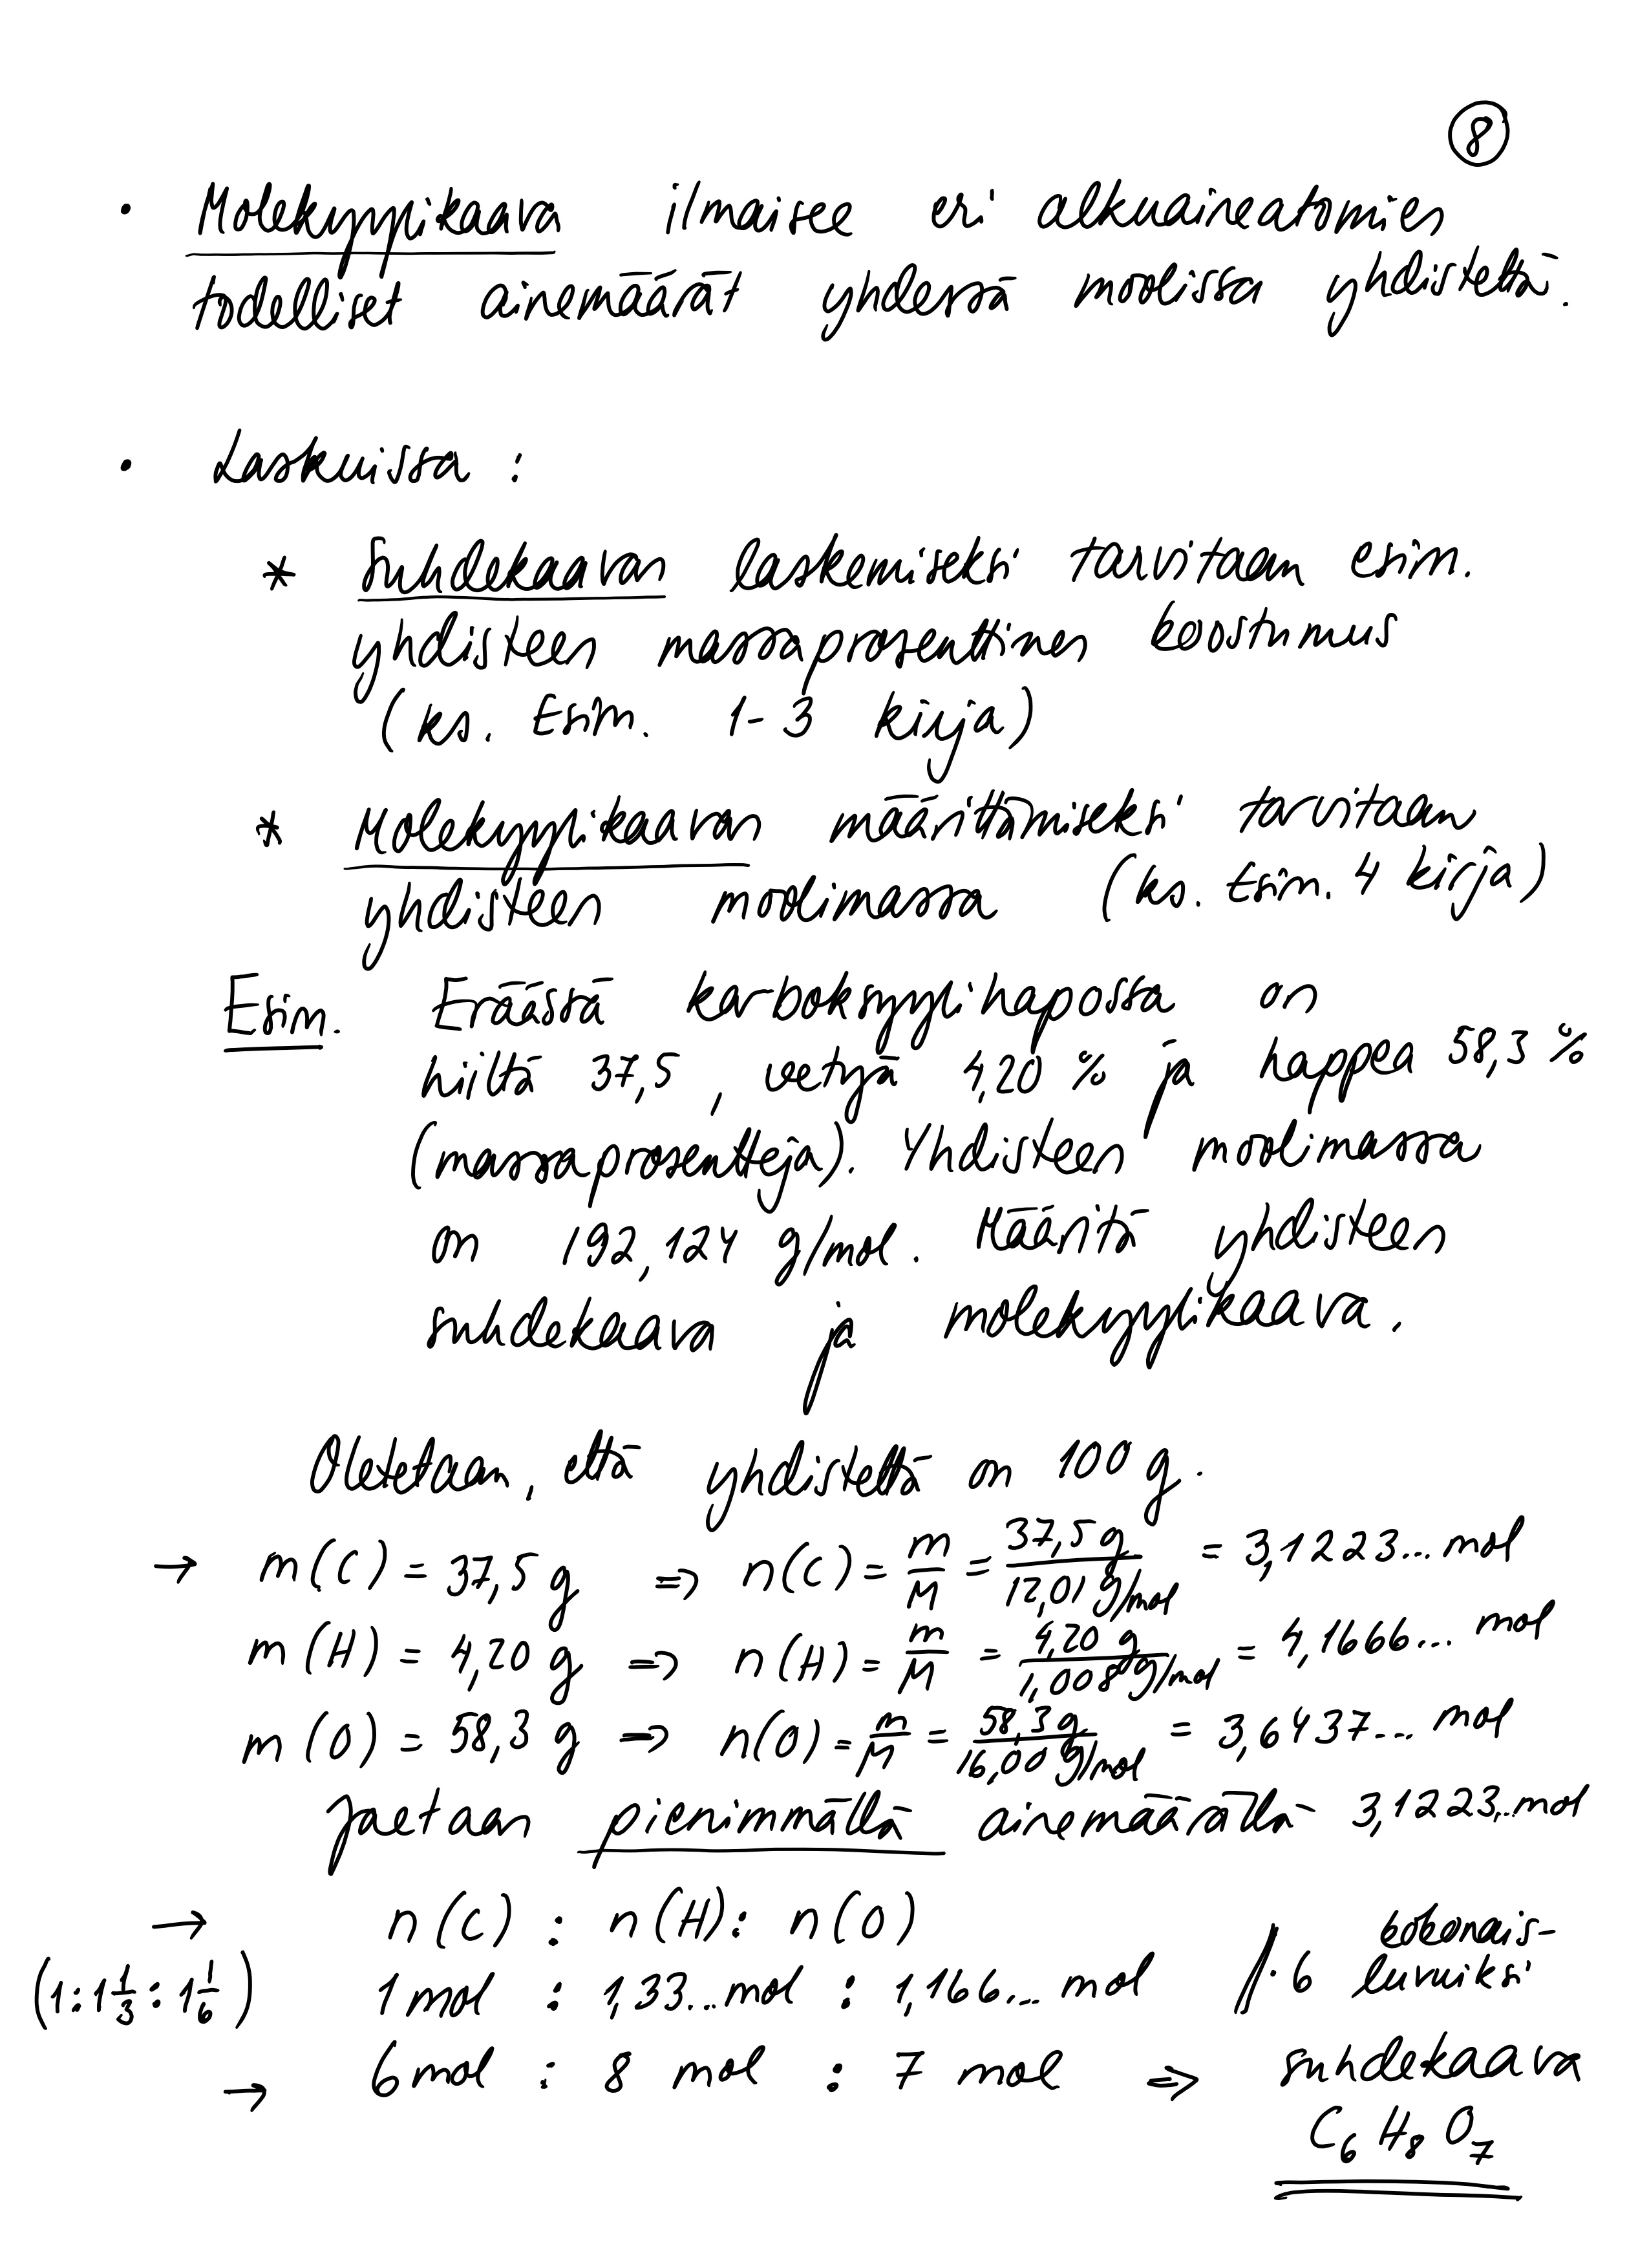 8
• Molekyylikaava ilmaisee eri alkuaineatomien
todelliset ainemäärät yhdessä moolissa yhdistettä.
• Laskuissa :
* Suhdekaavan laskemiseksi tarvitaan esim.
yhdisteen massaprosenttinen koostumus
(ks. Esim. 1-3 kirja)
* Molekyylikaavan määrittämiseksi tarvitaan
yhdisteen moolimassa (ks. Esim. 4 kirja)
Esim. Eräässä karboksyylihapossa on
hiiltä 37,5 , vetyä 4,20 % ja happea 58,3 %
(massaprosentteja). Yhdisteen moolimassa
on 192,124 g/mol. Määritä yhdisteen
suhdekaava ja molekyylikaava.
Oletetaan, että yhdistettä on 100 g.
→ m(C) = 37,5 g => n(C) = m/M = 37,5 g / 12,01 g/mol = 3,1223... mol
m(H) = 4,20 g => n(H) = m/M = 4,20 g / 1,008 g/mol = 4,1666... mol
m(O) = 58,3 g => n(O) = m/M = 58,3 g / 16,00 g/mol = 3,6437... mol
Jaetaan pienimmällä ainemäärällä 3,1223... mol
→ n(C) : n(H) : n(O)
(1 : 1 1/3 : 1 1/6) 1 mol : 1,33... mol : 1,166... mol // · 6 kokonais-
luvuiksi
→ 6 mol : 8 mol : 7 mol => suhdekaava
C₆H₈O₇